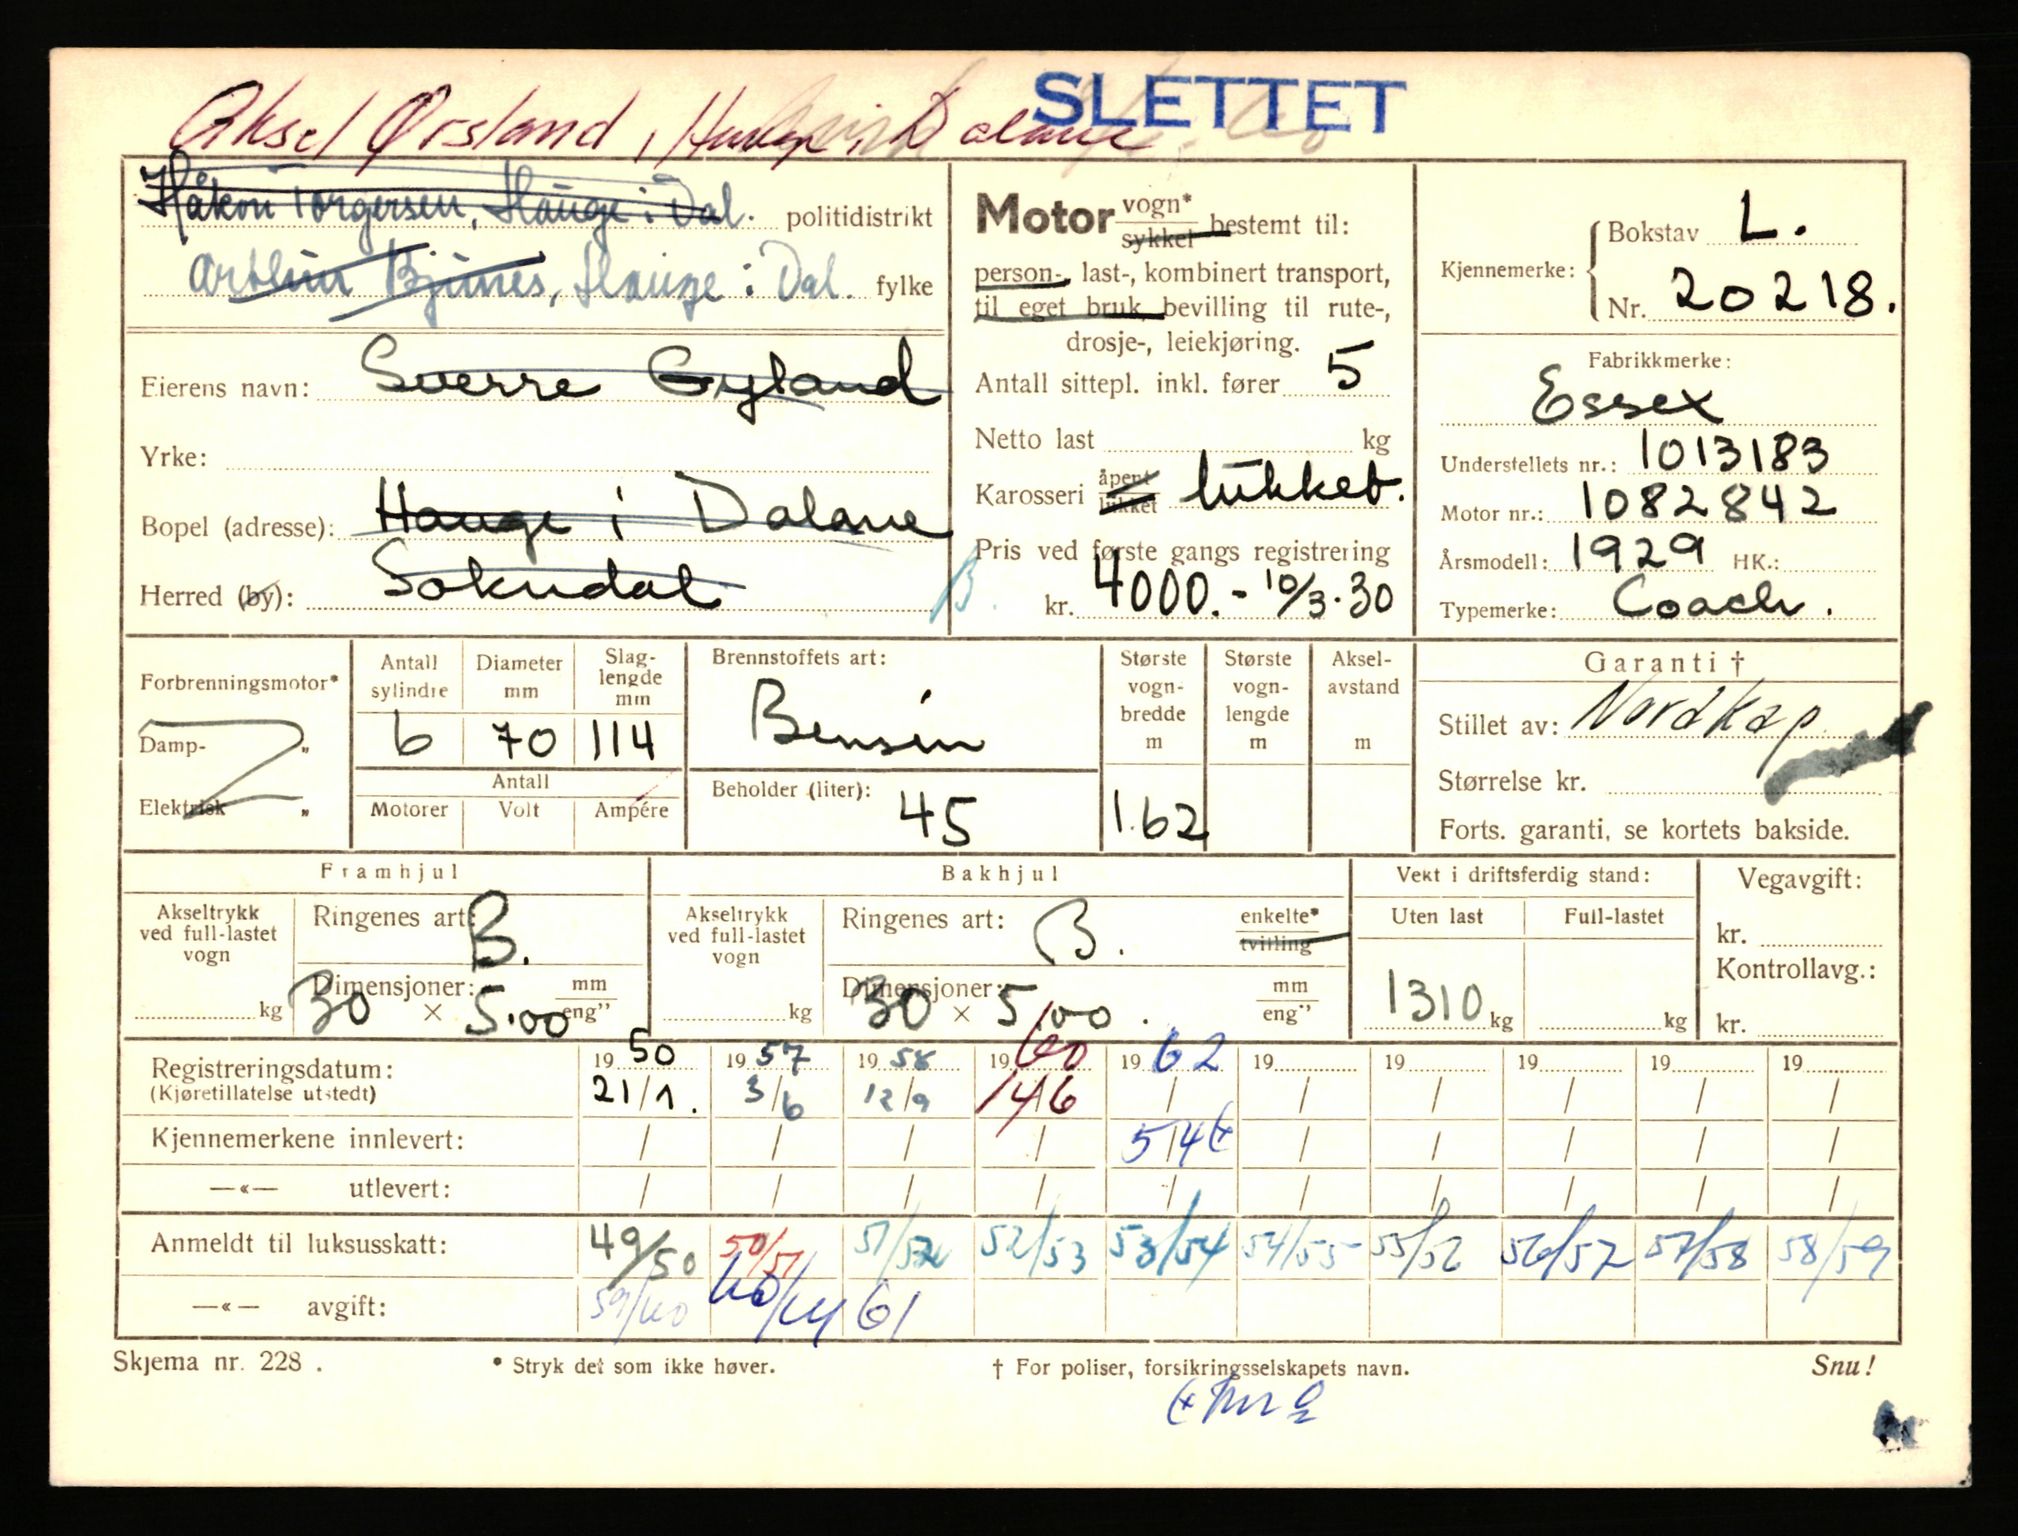 SLETTET
Aksel Ørsland, Hauge i Dalane
Håkon Torgersen, Hauge i Dal. politidistrikt
Arthur Bjunes, Hauge i Dal. fylke
Eierens navn: Sverre Gyland
Yrke:
Bopel (adresse): Hauge i Dalane
Herred (by): Sokndal
B.
Motor vogn* sykkel bestemt til:
person-, last-, kombinert transport,
til eget bruk, bevilling til rute-,
drosje-, leiekjøring.
Antall sittepl. inkl. fører 5
Netto last kg
Karosseri åpent lukket lukket.
Pris ved første gangs registrering
kr. 4000.- 10/3.30
Kjennemerke: Bokstav L.
Nr. 20218.
Fabrikkmerke:
Essex
Understellets nr.: 1013183
Motor nr.: 1082842
Årsmodell: 1929 HK.:
Typemerke: Coach.
Forbrenningsmotor*
Damp- "
Elektrisk "
Antall sylindre 6
Diameter mm 70
Slaglengde mm 114
Antall
Motorer Volt Ampére
Brennstoffets art:
Bensin
Beholder (liter):
45
Største vogn-bredde m 1.62
Største vogn-lengde m
Aksel-avstand m
Garanti †
Stillet av: Nordkap
Størrelse kr.
Forts. garanti, se kortets bakside.
Framhjul
Akseltrykk ved full-lastet vogn kg
Ringenes art: B.
Dimensjoner: 30 × 5.00 mm eng"
Bakhjul
Akseltrykk ved full-lastet vogn kg
Ringenes art: B. enkelte* tvilling
Dimensjoner: 30 × 5.00. mm eng"
Vekt i driftsferdig stand:
Uten last Full-lastet
1310 kg kg
Vegavgift:
kr.
Kontrollavg.:
kr.
Registreringsdatum: 1950 1957 1958 1960 1962 19 19 19 19 19
(Kjøretillatelse utstedt) 21/1. 3/6 12/9 14/6 / / / / / /
Kjennemerkene innlevert: / / / / 5/4 / / / / /
—«— utlevert: / / / / / / / / / /
Anmeldt til luksusskatt: 49/50 50/51 51/52 52/53 53/54 54/55 55/56 56/57 57/58 58/59
—«— avgift: 59/60 60/61 61
Skjema nr. 228. * Stryk det som ikke høver. † For poliser, forsikringsselskapets navn. Snu!